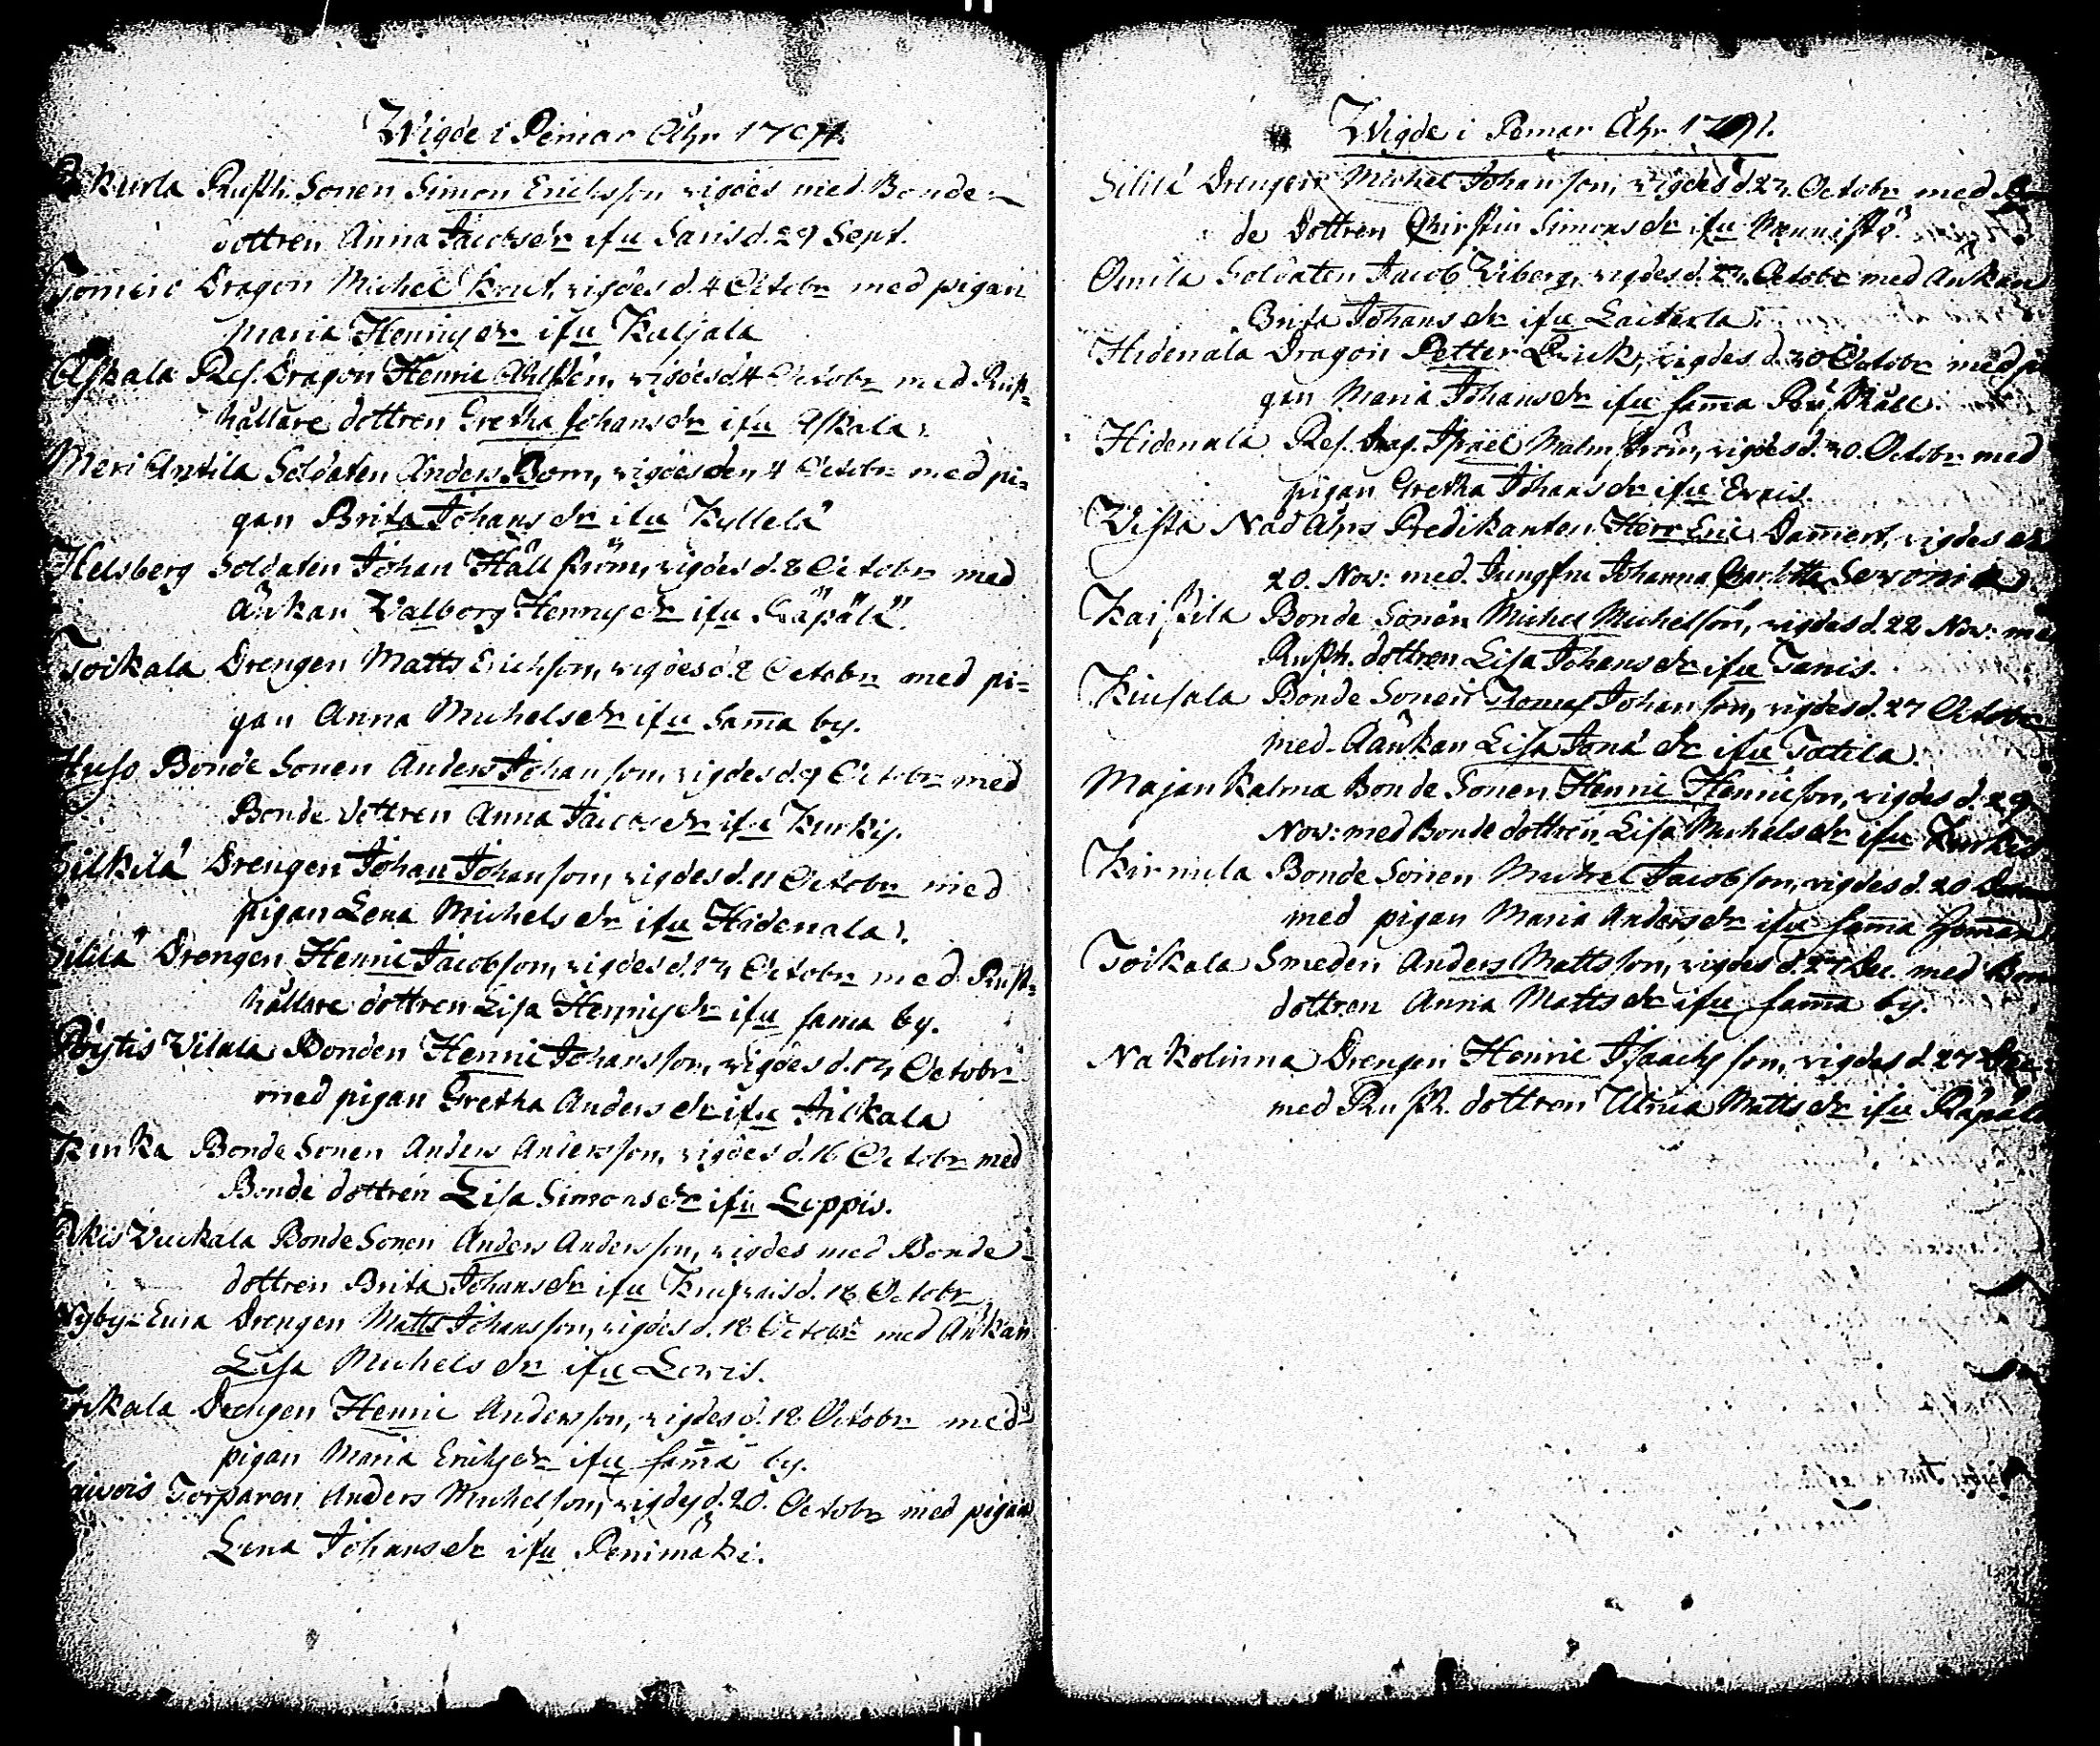 Wigde i Pemar Åhr 1791.
Rusth. Sonen Simon Erichsson vigdes med Bonde-
dottren Anna Jacobsdr ifrn Saris d. 29 Sept.
Dragon Michel Knut, vigdes d. 4 Octobr med pigan
Maria Henrigsdr ifrn Kaljala
Askala Res. Dragon Henric Ahlsten, vigdes d 4 Octobr med Rust-
hållare dottren Gretha Johansdr ifrn Askala.
Meri Antila Soldaten Anders Bom, vigdes den 4 Octobr med pi-
gan Brita Johansdr ifrn Kyllelä
Helsberg Soldaten Johan Hällström, vigdes d. 8 Octobr med
Änkan Walborg Henrigsdr ifrn Räpälä.
Toikala Drengen Matts Erichson, vigdes d. 8 Octobr med pi-
gan Anna Michelsdr ifrn Sam̄a by.
Huso Bonde Sonen Anders Johanson, vigdes d. 9 Octobr med
Bonde dottren Anna Jacobsdr ifrn Kurkis.
Drengen Johan Johanson, vigdes d. 11 Octobr med
pigan Lena Michelsdr ifrn Hidenala.
Sililä Drengen Henric Jacobson, vigdes d. 13 Octobr med Rust-
hållare dottren Lisa Henrigsdr ifrn sama by.
Pöytis Vilala Bonden Henric Johansson, vigdes d. 13 Octobr
med pigan Gretha Andersdr ifrn Jilkala
Bonde Sonen Anders Anderson, vigdes d. 16 Octobr med
Bonde dottren Lisa Simonsdr ifrn Leppis.
Bonde Sonen Anders Anderson, vigdes med Bonde-
dottren Brita Johansdr ifrn d. 18 Octobr
Nyby-Eura Drengen Matts Johansson, vigdes d. 18 Octobr med Änkan
Lisa Michelsdr ifrn Lowis.
Drengen Henric Anderson, vigdes d. 18 Octobr med
pigan Maria Erichsdr ifrn sam̄a by.
Torparen Anders Michelson, vigdes d. 20. Octobr med pigan
Lena Johansdr ifrn Penimäki.
Wigde i Pemar Åhr 1791.
Sililä Drengen Michel Johanson, vigdes d. 23 Octobr med Bon-
de Dottren Christin Simonsdr ifrn Nunnistö.
Soldaten Jacob Wiberg, vigdes d. 23 Octobr med Änkan
Brita Johansdr ifrn Laiterla.
Hidenala Dragon Petter Quick, vigdes d. 30 Octobr med pi-
gan Maria Johansdr ifrn sam̄a Rusthåll.
Hidenala Res. Drag. Israel Malmström, vigdes d. 30. Octobr med
pigan Gretha Johansdr ifrn Evais.
Wista Nåd Åhrs Predikanten Herr Eric Dam̄ert, vigdes d
20. Nov: med Jungfru Johanna Charlotta
Kaistila Bonde Sonen Michel Michelson, vigdes d. 22 Nov: med
Rusth. dottren Lisa Johansdr ifrn Tanis.
Bonde Sonen Thomas Johanson, vigdes d. 27 Octobr
med Äankan Lisa dr ifrn Tattila
Majankalma Bonde Sonen Henric Henricson, vigdes d. 29
Nov: med Bonde dottren Lisa Michelsdr ifrn Kurkis
Kirmula Bonde Sonen Michel Jacobson, vigdes d. 20
med pigan Maria Andersdr ifrn sam̄a
Toikala Smeden Anders Mattsson, vigdes d. 27 Dec. med Bon-
dottren Anna Mattsdr ifrn sam̄a by.
Nakolinna Drengen Henric Isaachsson, vigdes d. 27 Dec:
med Rusth. dottren Ulrica Mattsdr ifrn Räpälä